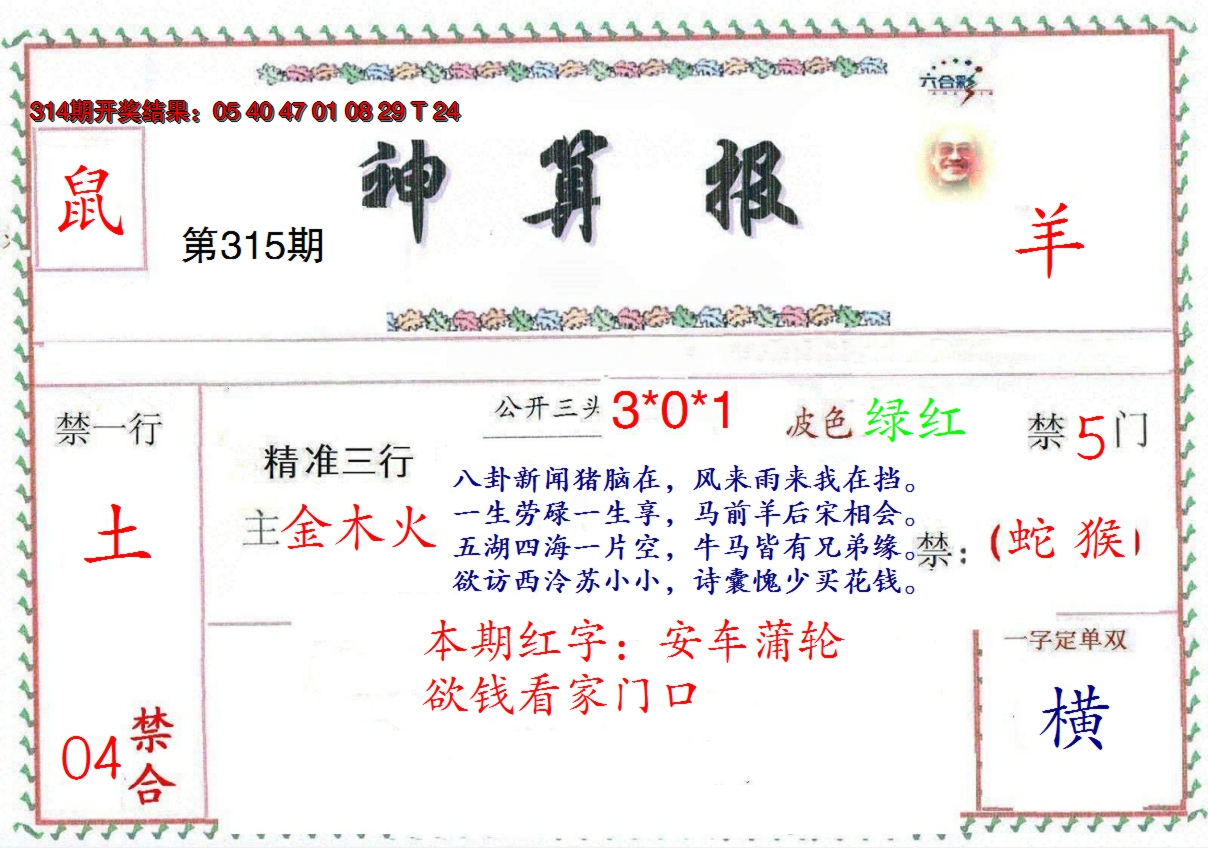 六合彩
314期开奖结果：05 40 47 01 08 29 T 24
神算报
鼠
第315期
羊
禁一行
土
04
禁合
精准三行
主金木火
公开三头
3*0*1
波色绿红
禁5门
八卦新闻猪脑在，风来雨来我在挡。
一生劳碌一生享，马前羊后宋相会。
五湖四海一片空，牛马皆有兄弟缘。
欲访西泠苏小小，诗囊愧少买花钱。
禁：（蛇 猴）
本期红字：安车蒲轮
欲钱看家门口
一字定单双
横